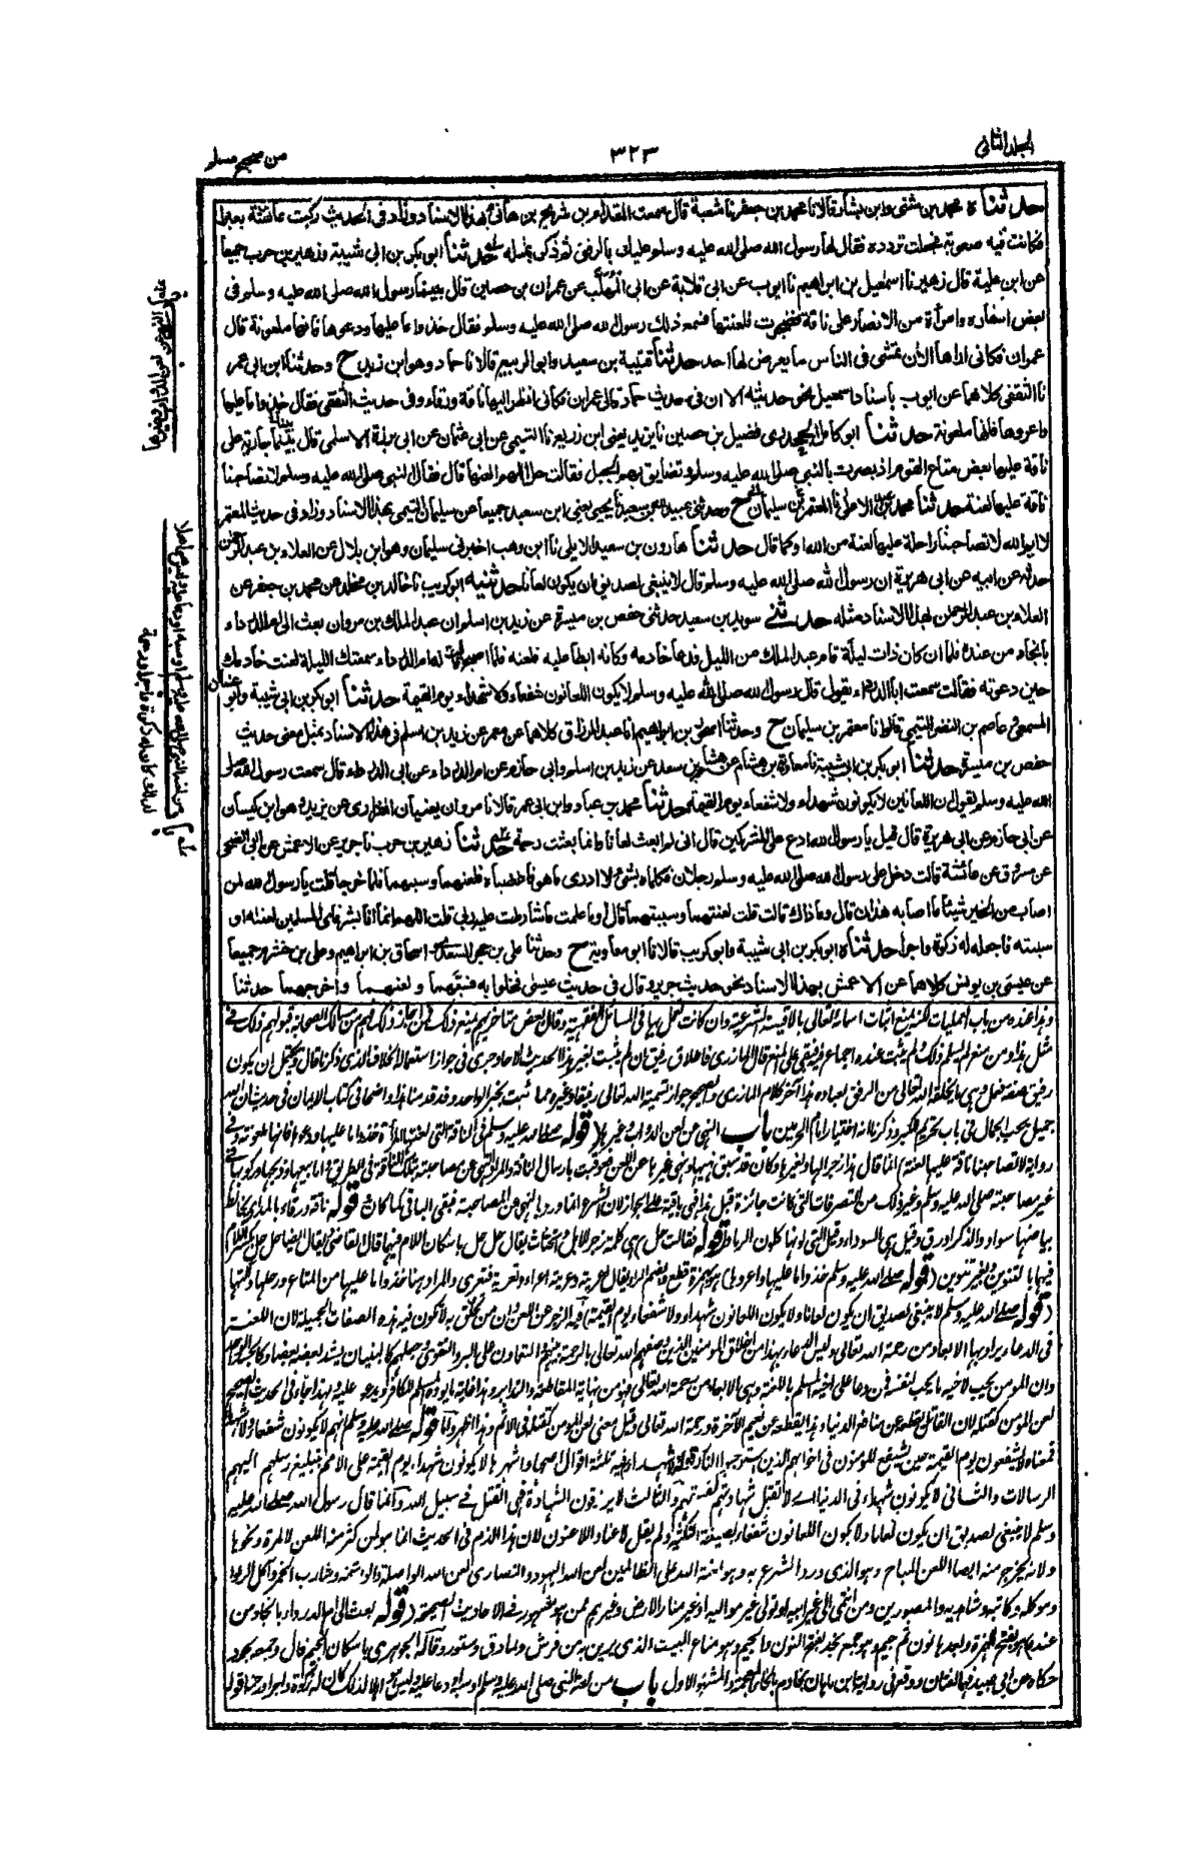 المجلد الثانى
٣٢٣
من صحيح مسلم
حدثناه محمد بن مثنى وابن بشار قالا نا محمد بن جعفر نا شعبة قال سمعت المقدام بن شريح بن هانئ بهذا الاسناد وزاد فى الحديث ركبت عائشة بعيرا
فكانت فيه صعوبة فجعلت تردده فقال لها رسول الله صلى الله عليه وسلم عليك بالرفق ثم ذكر بمثله حدثنا ابو بكر بن ابى شيبة وزهير بن حرب جميعا
عن ابن علية قال زهير نا اسمعيل بن ابراهيم نا ايوب عن ابى قلابة عن ابى المهلب عن عمران بن حصين قال بينما رسول الله صلى الله عليه وسلم فى
بعض اسفاره وامرأة من الانصار على ناقة فضجرت فلعنتها فسمع ذلك رسول الله صلى الله عليه وسلم فقال خذوا ما عليها ودعوها فانها ملعونة قال
عمران فكانى اراها الآن تمشى فى الناس ما يعرض لها احد حدثنا قتيبة بن سعيد وابو الربيع قالا نا حماد وهو ابن زيد ح وحدثنا ابن ابى عمر
نا الثقفى كلاهما عن ايوب باسناد اسمعيل نحو حديثه الا ان فى حديث حماد قال عمران فكانى انظر اليها ناقة ورقاء وفى حديث الثقفى فقال خذوا ما عليها
واعروها فانها ملعونة حدثنا ابو كامل الجحدرى فضيل بن حصين نا يزيد يعنى ابن زريع نا التيمى عن ابى عثمان عن ابى برزة الاسلمى قال بينما جارية على
ناقة عليها بعض متاع القوم اذ بصرت بالنبى صلى الله عليه وسلم وتضايق بهم الجبل فقالت حل اللهم العنها قال فقال النبى صلى الله عليه وسلم لا تصاحبنا
ناقة عليها لعنة حدثنا محمد بن عبد الاعلى نا المعتمر بن سليمان ح وحدثنى عبيد الله بن سعيد نا يحيى يعنى ابن سعيد جميعا عن سليمان التيمى بهذا الاسناد وزاد فى حديث المعتمر
لا ايم الله لا تصاحبنا راحلة عليها لعنة من الله او كما قال حدثنا هارون بن سعيد الايلى نا ابن وهب اخبرنى سليمان وهو ابن بلال عن العلاء بن عبد الرحمن
حدثه عن ابيه عن ابى هريرة ان رسول الله صلى الله عليه وسلم قال لا ينبغى لصديق ان يكون لعانا حدثنيه ابو كريب نا خالد بن مخلد عن محمد بن جعفر عن
العلاء بن عبد الرحمن بهذا الاسناد مثله حدثنى سويد بن سعيد حدثنى حفص بن ميسرة عن زيد بن اسلم ان عبد الملك بن مروان بعث الى ام الدرداء
بانجاد من عنده فلما ان كان ذات ليلة قام عبد الملك من الليل فدعا خادمه وكانه ابطأ عليه فلعنه فلما اصبح قالت له ام الدرداء سمعتك الليلة لعنت خادمك
حين دعوته فقالت سمعت ابا الدرداء يقول قال رسول الله صلى الله عليه وسلم لا يكون اللعانون شفعاء ولا شهداء يوم القيمة حدثنا ابو بكر بن ابى شيبة وابو غسان
المسمعى وعاصم بن النضر التيمى قالوا نا معتمر بن سليمان ح وحدثنا اسحق بن ابراهيم انا عبد الرزاق كلاهما عن معمر عن زيد بن اسلم فى هذا الاسناد بمثل معنى حديث
حفص بن ميسرة حدثنا ابو بكر بن ابى شيبة نا معاوية بن هشام عن هشام بن سعد عن زيد بن اسلم وابى حازم عن ام الدرداء عن ابى الدرداء قال سمعت رسول الله صلى
الله عليه وسلم يقول ان اللعانين لا يكونون شهداء ولا شفعاء يوم القيمة حدثنا محمد بن عباد وابن ابى عمر قالا نا مروان يعنيان الفزارى عن يزيد وهو ابن كيسان
عن ابى حازم عن ابى هريرة قال قيل يا رسول الله ادع على المشركين قال انى لم ابعث لعانا وانما بعثت رحمة حدثنا زهير بن حرب نا جرير عن الاعمش عن ابى الضحى
عن مسروق عن عائشة قالت دخل على رسول الله صلى الله عليه وسلم رجلان فكلماه بشئ لا ادرى ما هو فاغضباه فلعنهما وسبهما فلما خرجا قلت يا رسول الله لمن
اصاب من الخير شيئا ما اصابه هذان قال وما ذاك قالت قلت لعنتهما وسببتهما قال اوما علمت ما شارطت عليه ربى قلت اللهم انما انا بشر فاى المسلمين لعنته او
سببته فاجعله له زكوة واجرا حدثناه ابو بكر بن ابى شيبة وابو كريب قالا نا ابو معاوية ح وحدثنا على بن حجر السعدى واسحاق بن ابراهيم وعلى بن خشرم جميعا
عن عيسى بن يونس كلاهما عن الاعمش بهذا الاسناد نحو حديث جرير وقال فى حديث عيسى فخلوا به فسبهما ولعنهما واخرجهما حدثنا
وهذا عنده من باب العمليات لكنه يمنع اثبات اسمائه تعالى بالاقيسة الشرعية وان كانت يعمل بها فى المسائل الفقهية وقال بعض متأخريهم يمنع ذلك فمن اجاز ذلك فهم من مسالك الصحابة قبولهم ذلك فى
مثل هذا ومن منع لم يسلم ذلك ولم يثبت عنده اجماع فيه فبقى على المنع قال المازرى فاطلاق رفيق ان لم يثبت بغير هذا الحديث الآحاد جرى فى جواز استعماله الخلاف الذى ذكرنا قال ويحتمل ان يكون
رفيق صفة فعل وهى ما يخلقه الله تعالى من الرفق لعباده هذا آخر كلام المازرى والصحيح جواز تسمية الله تعالى رفيقا وغيره مما ثبت بخبر الواحد وقد قدمنا هذا واضحا فى كتاب الايمان فى حديث ان الله
جميل يحب الجمال فى باب تحريم الكبر وذكرنا انه اختيار امام الحرمين باب النهى عن لعن الدواب وغيرها (قوله صلى الله عليه وسلم فى الناقة التى لعنتها المرأة خذوا ما عليها ودعوها فانها ملعونة وفى
رواية لا تصاحبنا ناقة عليها لعنة) انما قال هذا زجرا لها ولغيرها وكان قد سبق نهيها ونهى غيرها عن اللعن فعوقبت بارسال الناقة والمراد النهى عن مصاحبته بتلك الناقة فى الطريق واما بيعها وذبحها وركوبها فى
غير مصاحبته صلى الله عليه وسلم وغير ذلك من التصرفات التى كانت جائزة قبل هذا فهى باقية على الجواز لان الشرع انما ورد بالنهى عن المصاحبة فبقى الباقى كما كان قوله ناقة ورقاء بالمد اى يخالط
بياضها سواد والذكر اورق وقيل هى السوداء وقيل التى لونها كلون الرماد (قوله فقالت حل) هى كلمة زجر للابل واستحثاث يقال حل حل باسكان اللام فيهما قال القاضى ويقال ايضا حل حل بكسر اللام
فيها بالتنوين وبغير تنوين (قوله صلى الله عليه وسلم خذوا ما عليها واعروها) هو بهمزة قطع وبضم الراء يقال اعريته وعريته اعراء وتعرية فتعرى والمراد هنا خذوا ما عليها من المتاع ورحلها وآلتها
(قوله صلى الله عليه وسلم لا ينبغى لصديق ان يكون لعانا ولا يكون اللعانون شهداء ولا شفعاء يوم القيمة) فيه الزجر عن اللعن وان من تخلق به لا تكون فيه هذه الصفات الجميلة لان اللعنة
فى الدعاء يراد بها الابعاد من رحمة الله تعالى وليس الدعاء بهذا من اخلاق المؤمنين الذين وصفهم الله تعالى بالرحمة بينهم والتعاون على البر والتقوى وجعلهم كالبنيان يشد بعضه بعضا وكالجسد الواحد
وان المؤمن يحب لاخيه ما يحب لنفسه فمن دعا على اخيه المسلم باللعنة وهى الابعاد من رحمة الله تعالى فهو من نهاية المقاطعة والتدابر وهذا غاية ما يوده المسلم للكافر ويدعو عليه ولهذا جاء فى الحديث الصحيح
لعن المؤمن كقتله لان القاتل يقطعه عن منافع الدنيا وهذا يقطعه عن نعيم الآخرة ورحمة الله تعالى وقيل معنى لعن المؤمن كقتله فى الاثم وهذا اظهر واما قوله صلى الله عليه وسلم انهم لا يكونون شفعاء ولا شهداء
فمعناه لا يشفعون يوم القيمة حين يشفع المؤمنون فى اخوانهم الذين استوجبوا النار وقوله ولا شهداء فيه ثلثة اقوال اصحها واشهرها لا يكونون شهداء يوم القيمة على الامم بتبليغ رسلهم اليهم
الرسالات والثانى لا يكونون شهداء فى الدنيا اى لا تقبل شهادتهم لفسقهم والثالث لا يرزقون الشهادة وهى القتل فى سبيل الله وانما قال رسول الله صلى الله عليه
وسلم لا ينبغى لصديق ان يكون لعانا ولا يكون اللعانون شفعاء بصيغة التكثير ولم يقل لاعنا واللاعنون لان هذا الذم فى الحديث انما هو لمن كثر منه اللعن لا لمرة ونحوها
ولانه يخرج منه ايضا اللعن المباح وهو الذى ورد الشرع به وهو لعنة الله على الظالمين لعن الله اليهود والنصارى لعن الله الواصلة والواشمة وشارب الخمر وآكل الربا
وموكله وكاتبه وشاهديه والمصورين ومن انتمى الى غير ابيه او تولى غير مواليه او غير منار الارض وغيرهم ممن هو مشهور فى الاحاديث الصحيحة (قوله بعث الى ام الدرداء بانجاد من
عنده) هو بفتح الهمزة وبعدها نون ثم جيم وهو جمع نجد بفتح النون والجيم وهو متاع البيت الذى يزين به من فرش ونمارق وستور وقاله الجوهرى باسكان الجيم قال وجمعه نجود
حكاه عن ابى عبيد فهما لغتان ووقع فى رواية ابن ماهان بخادم بالخاء المعجمة والمشهور الاول باب من لعنه النبى صلى الله عليه وسلم او سبه او دعا عليه وليس هو اهلا لذلك كان له زكوة واجرا ورحمة قوله